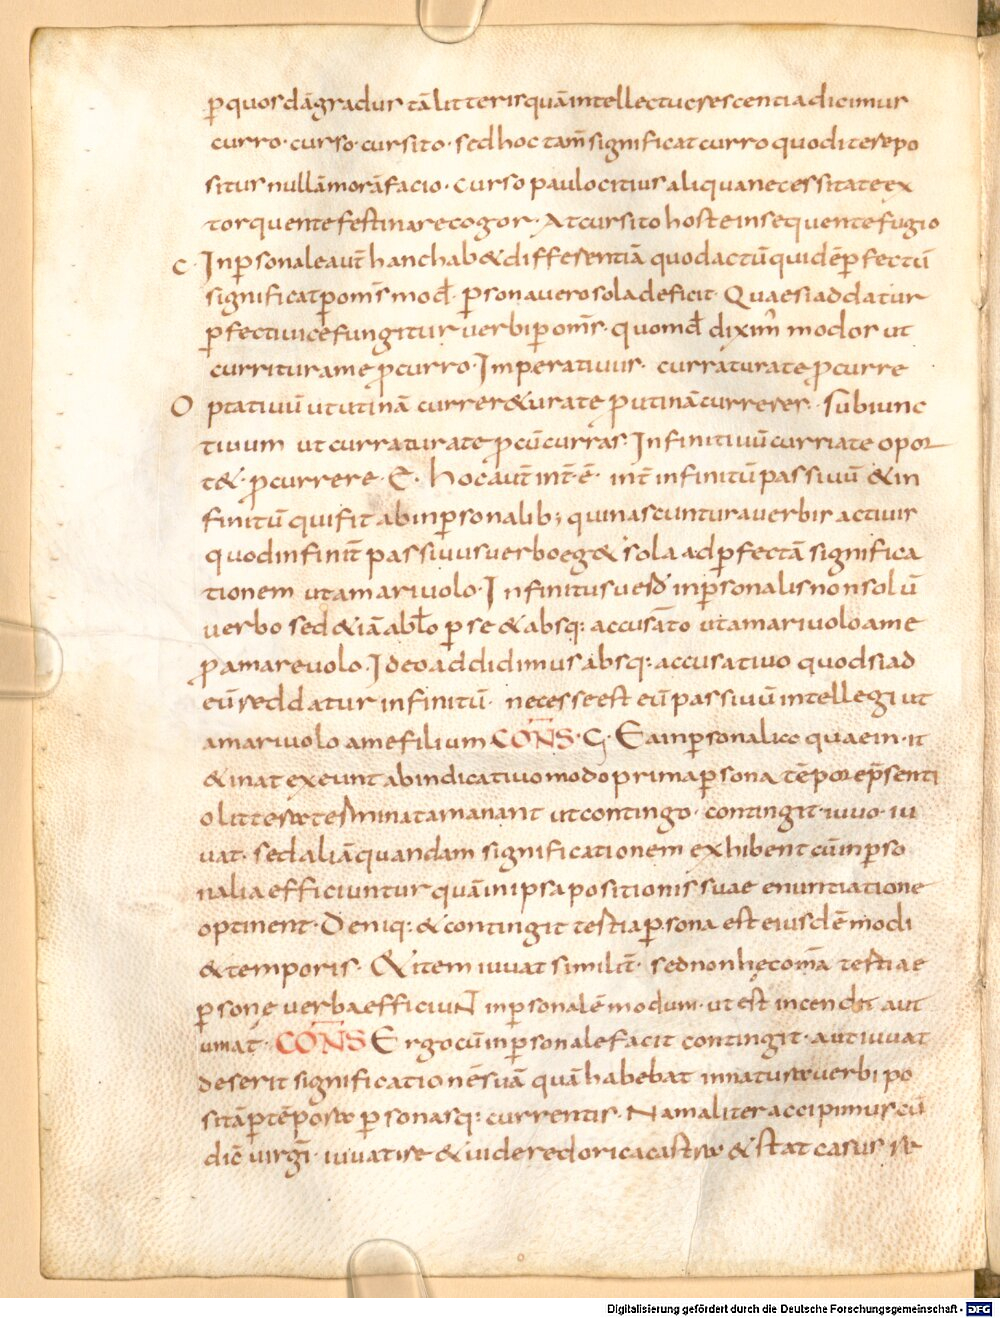 ꝑquosdāgradus tālitterisquāintellectucrescentiadicimus
curro · curso · cursito · sedhoc tam̄significatcurroquoditerepo
siturnullāmorāfacio · Curso paulocitius aliquanecessitateex
torquentefestinarecogor · Atcursitohosteinsequentefugio
C Inꝑsonaleaut̄hanchab&differentiā quodactūquidēꝑfectū
significatꝑom̄smod̄ · ꝑsonaverosoladeficit · Quaesiaddatur
ꝑfectivicefungitur verbiꝑom̄s · quomd̄ dixim̄ modos ut
curriturame ꝓcurro · Imperativus · curraturate ꝓcurre
O ptativū ututinā currer&urate ꝓutinācurreres · Subiunc
tivum ut curraturate ꝓcūcurras · Infinitivūcurriate opor
t& · ꝓcurrere · C · Hocaut̄ int̄ ē · int̄ infinitū passivū &in
finitū quifit abinꝑsonalib; quinascunturaverbis activis
quodinfinit̄ passivusverboeg& sola adꝑfectā significa
tionem utamarivolo · Infinitusverō inꝑsonalisnonsolū
verbo sed&iāabl̄o ꝑ se &absq: accusat̄o utamarivoloame
ꝓamarevolo · Ideoaddidimusabsq: accusativo quodsiad
eūreddatur infinitū · necesseest eū passivū intellegi ut
amarivolo amefilium CONS̄ · G · Eainꝑsonalico quaein · it
&inat exeunt abindicativomodoprimaꝑsona tēpore p̄senti
olitteraterminatamanant utcontingo · contingit · iuvo · iu
vat · sedaliāquandam significationem exhibent cūinꝑso
naliaefficiuntur quāinipsapositionissuae enuntiatione
optinent · Deniq: &contingit tertiaꝑsona est eiusdēmodi
&temporis · &item iuvat similit̄ · sednonhęcom̄a tertiae
ꝑsonę verbaefficiuNt inꝑsonalēmodum · ut est incendit aut
umat · CONS̄ Ergocūinꝑsonalefacit contingit · autiuvat
deserit significationēsuā quāhabebat innaturaverbi po
sitāꝑtēpora ꝑsonasq: currentis · Namaliter accipimuscū
dic̄ virgī · iuvatire &videredoricacastra &stat casus re